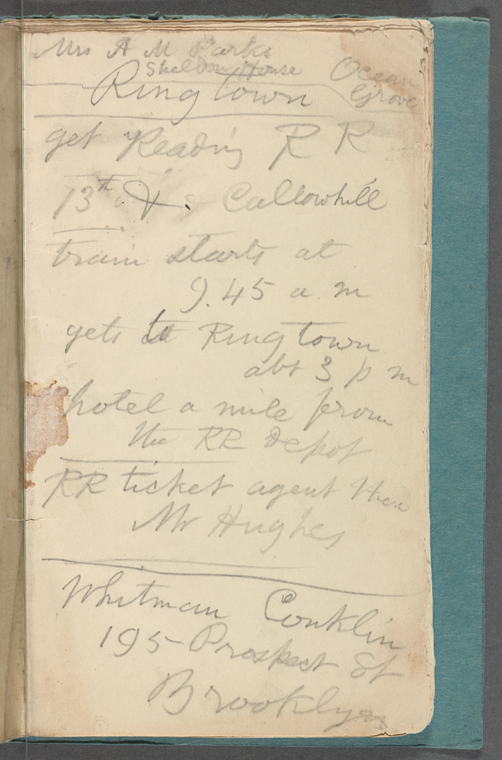 Mrs A M Parks
Sheldon House
Ocean
Grove
Ringtown
get Reading R R
13th & Callowhill
train starts at
9.45 a. m
gets to Ringtown
abt 3 p m
hotel a mile from
the RR depot
RR ticket agent there
Mr Hughes
Whitman Conklin
195 Prospect St
Brooklyn